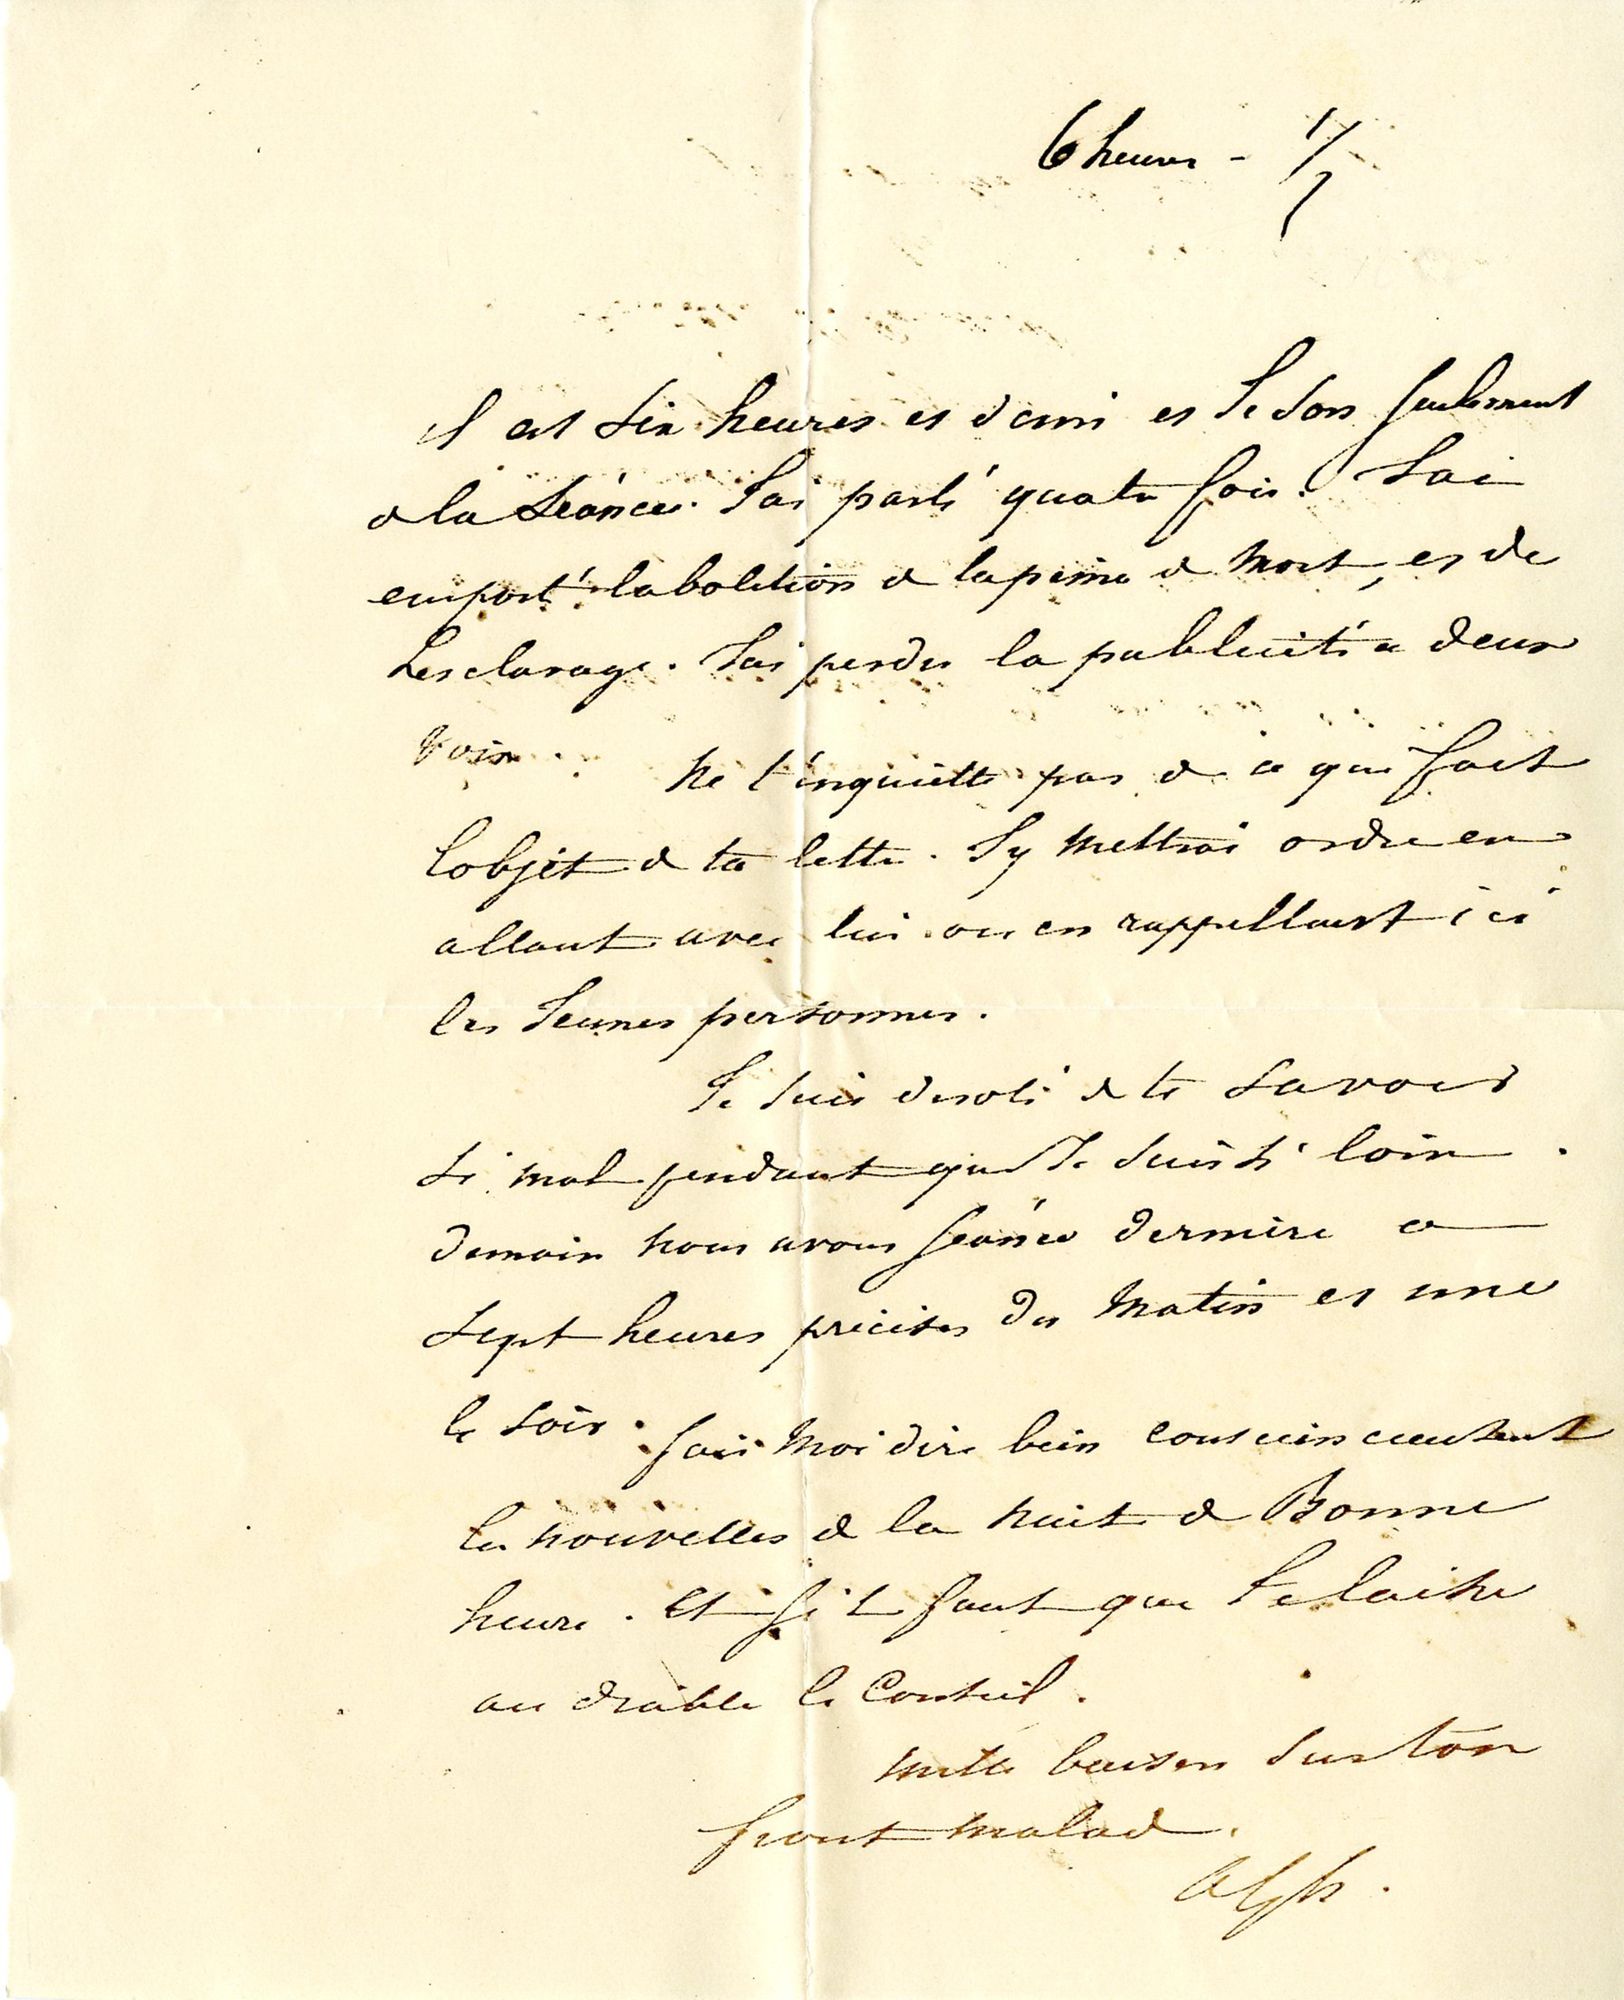 6 heures - 1/2
il est six heures et demi et Je sors seulement
de la Séance. J'ai parlé quatre fois. J'ai
emporté labolition de la peine de mort, et de
Lesclavage. J'ai perdu la publicité a deux
voix. Ne t'inquiette pas de ce qui fait
lobjet de ta lettre. J'y mettrai ordre en
allant avec lui ou en rappellant ici
les Jeunes personnes.
Je suis desolé de te savoir
si mal pendant que Je suis si loin.
demain nous avons séance derniere a
sept heures précises du matin et une
le soir. fais moi dire bien
les nouvelles de la nuit de Bonne
heure. Et s'il faut que Je laisse
au diable le Conseil.
mille baisers sur ton
front malade.
Alph.